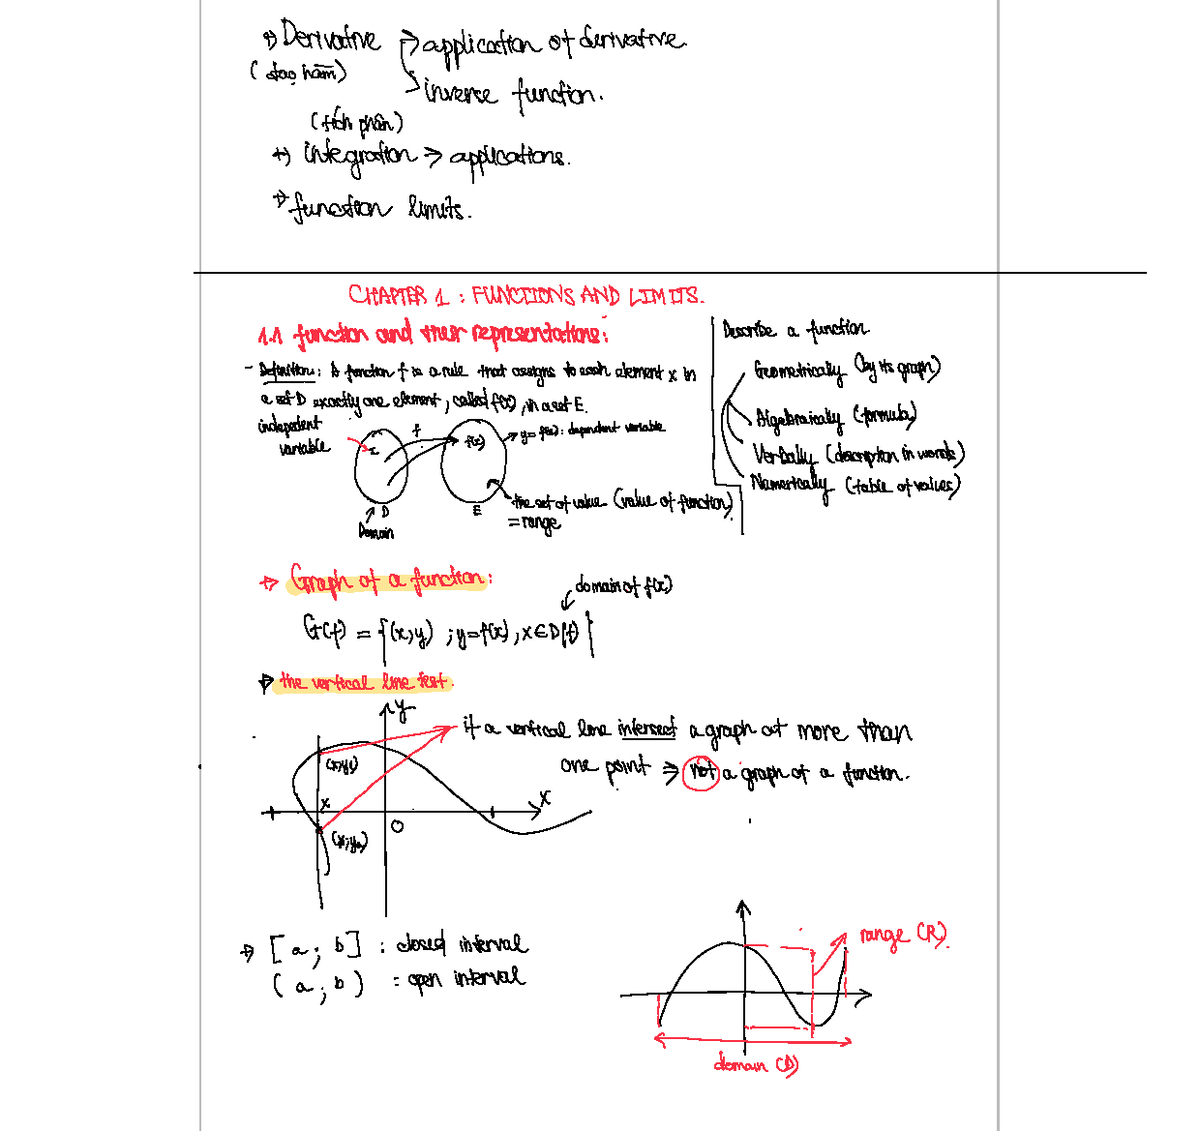 +) Derivative → application of derivative.
(đạo hàm) → inverse function.
(tích phân)
+) integration → applications.
+) function limits.
CHAPTER 1 : FUNCTIONS AND LIMITS.
1.1 function and their representations:
- Definition: A function f is a rule that assigns to each element x in
a set D exactly one element, called f(x), in a set E.
independent
variable
x
f
f(x)
→ y = f(x): dependent variable
D
E
Domain
the set of value (value of function)
= range
Describe a function
Geometrically (by its graph)
Algebraically (formula)
Verbally (description in words)
Numerically (table of values)
→ Graph of a function:
domain of f(x)
G(f) = {(x,y) ; y=f(x), x∈D(f)}
→ the vertical line test.
y
if a vertical line intersect a graph at more than
one point ⇒ not a graph of a function.
x
x
O
→ [a; b] : closed interval
(a; b) : open interval
range (R).
domain (D)